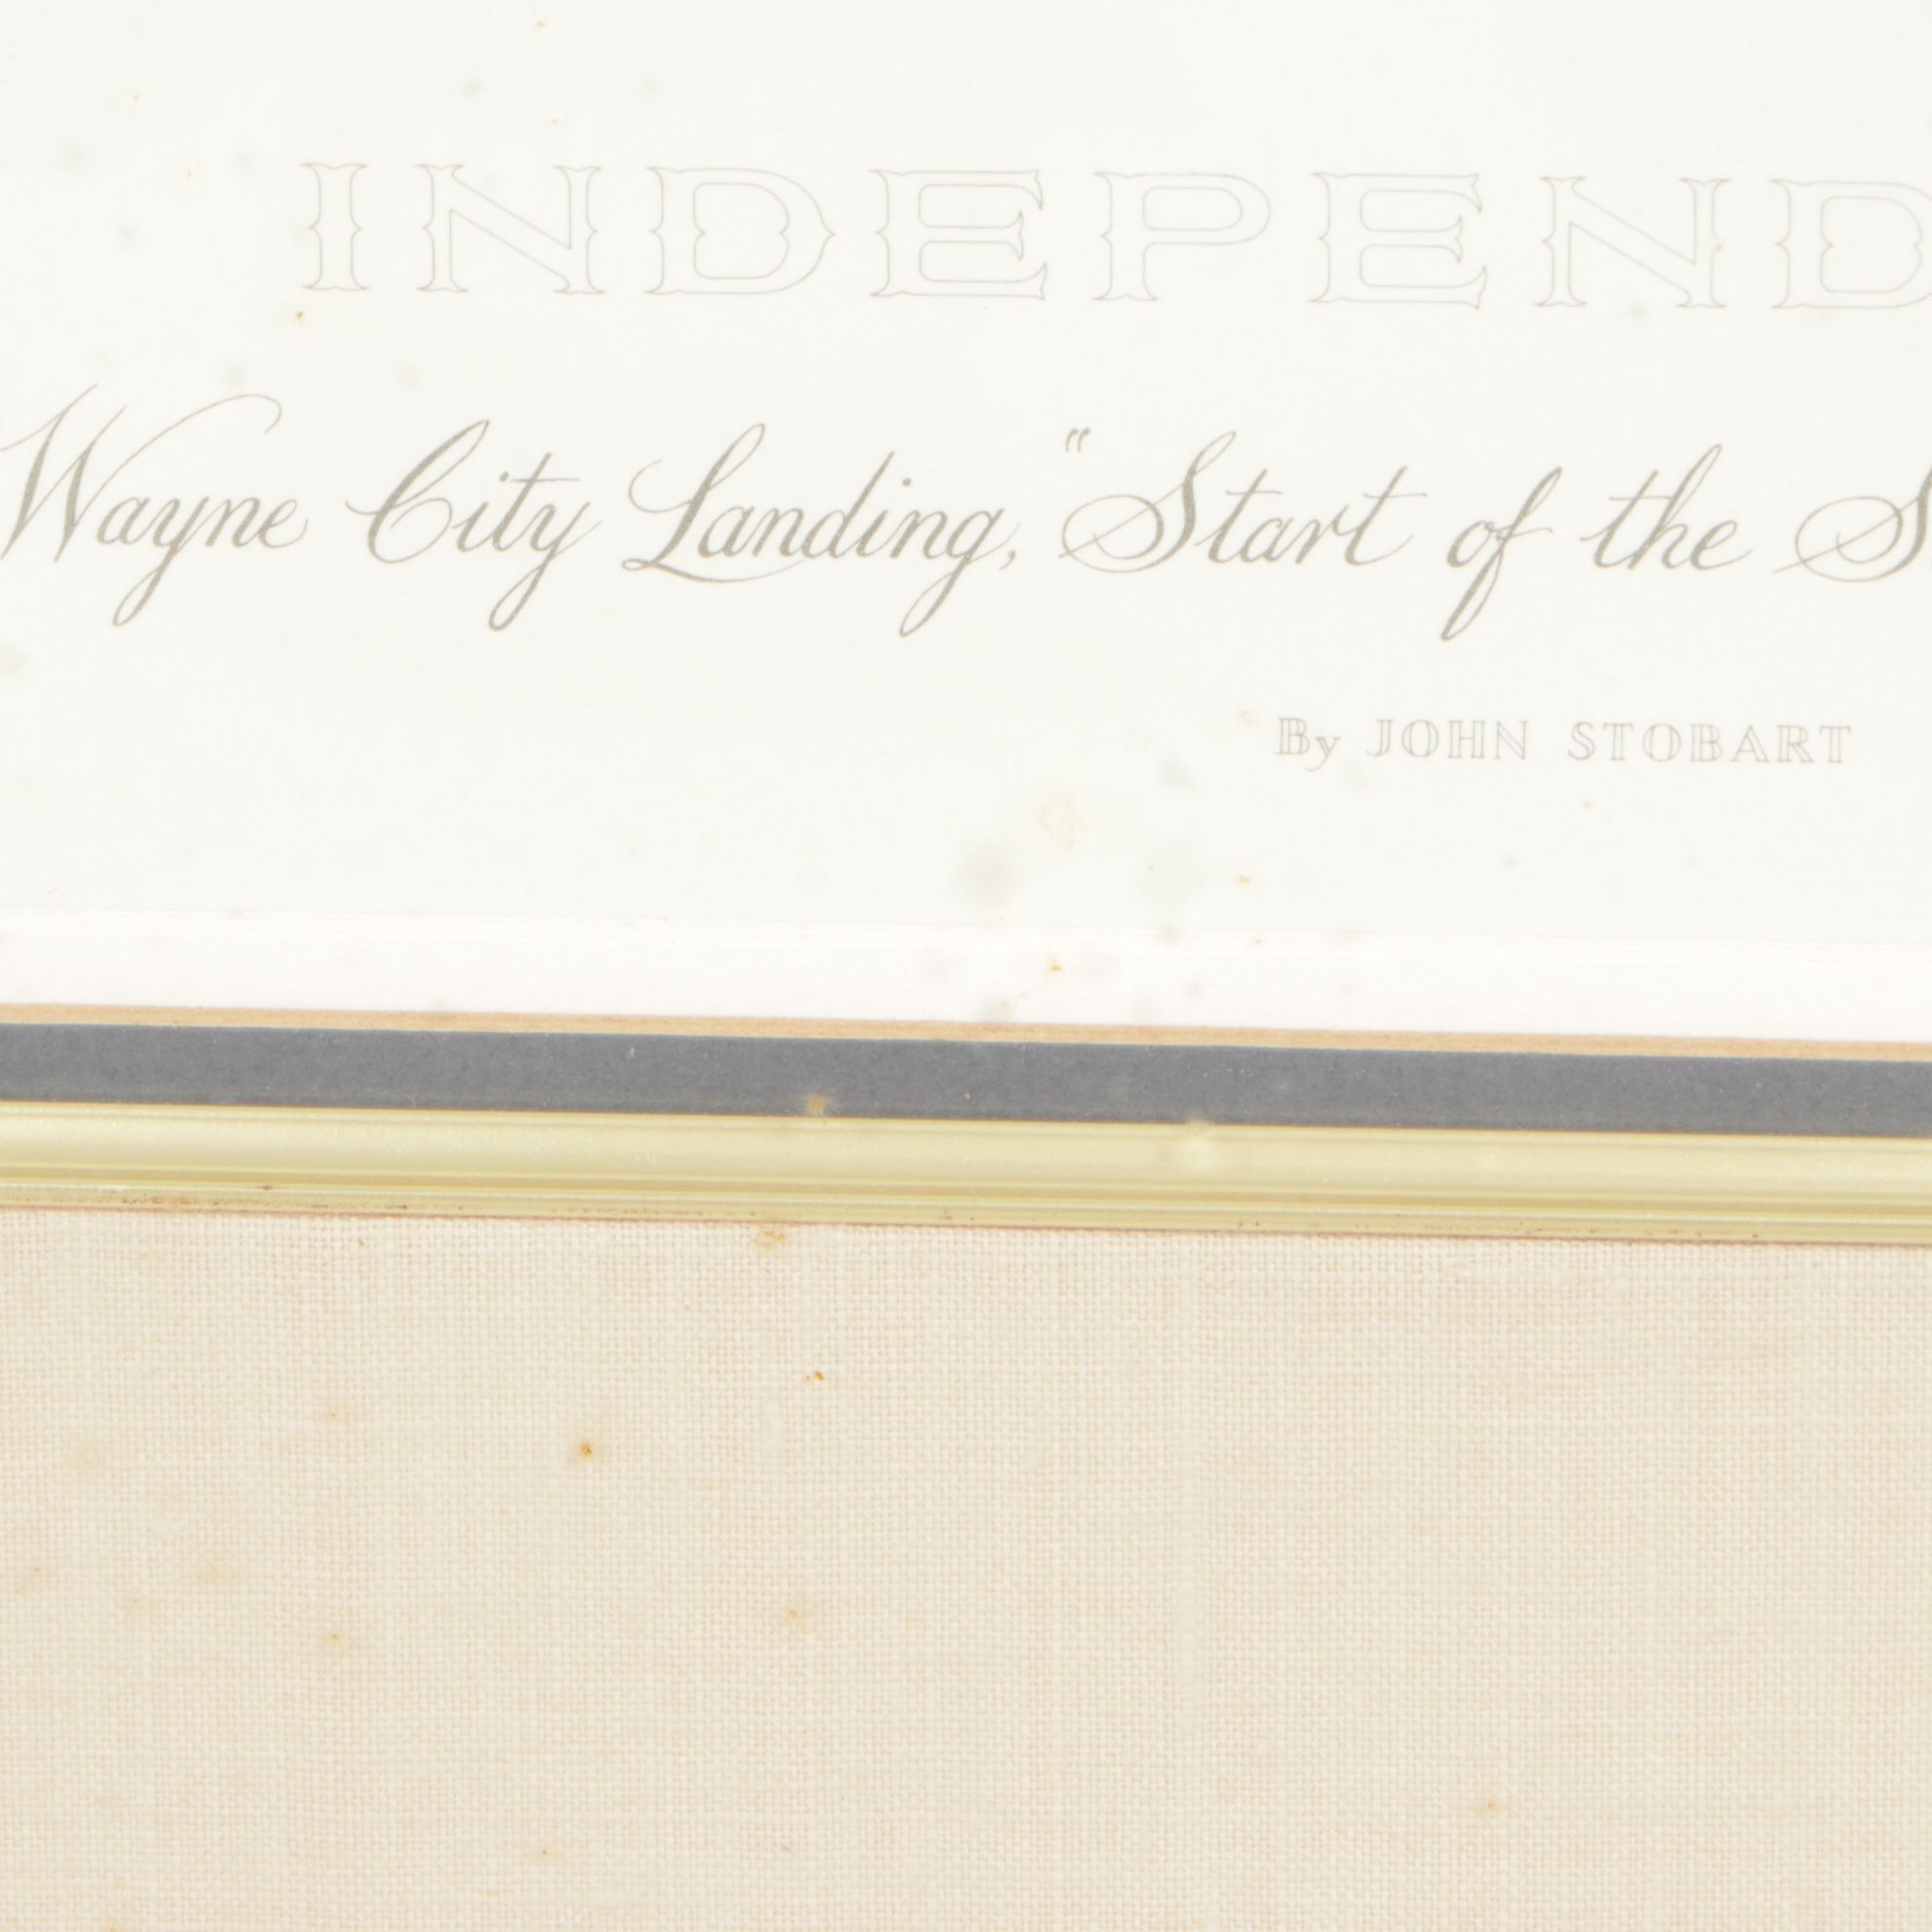 INDEPEND
Wayne City Landing, "Start of the S
By JOHN STOBART